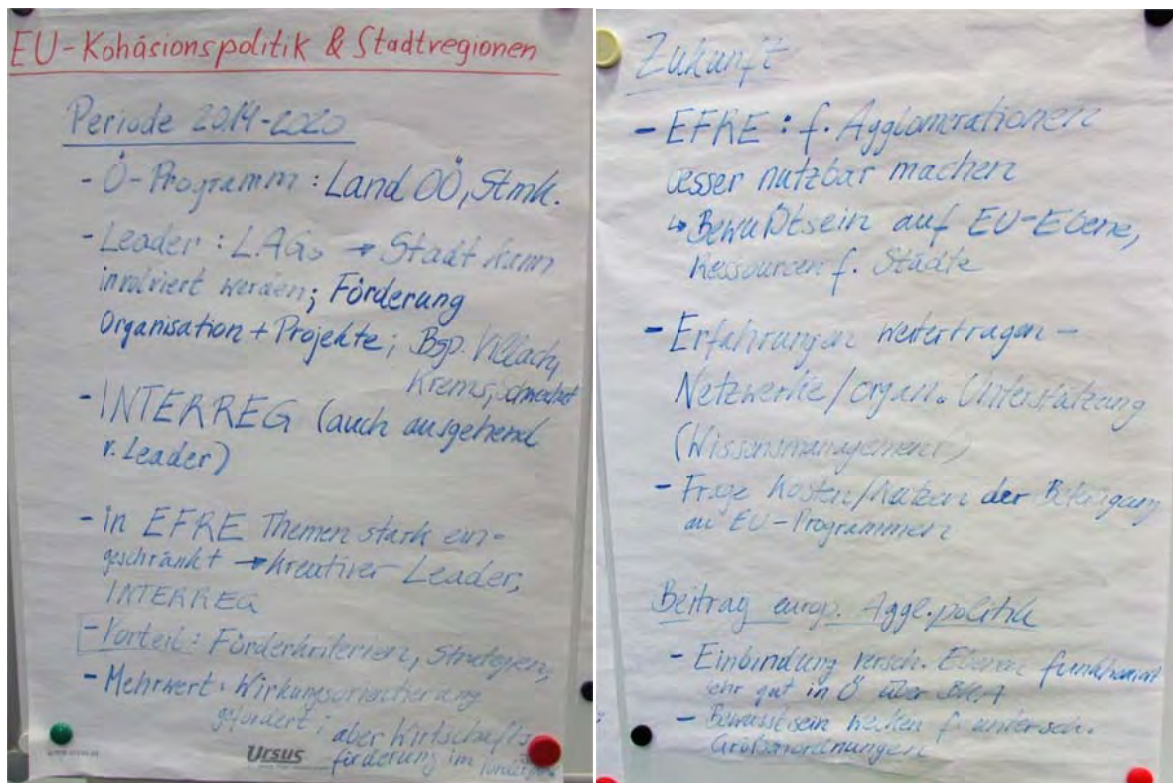 EU-Kohäsionspolitik & Stadtregionen
Periode 2014-2020
- Ö-Programm: Land OÖ, Stmk.
- Leader: LAGs → Stadt kann
involviert werden; Förderung
Organisation + Projekte; Bsp. Villach,
Krems,
- INTERREG (auch ausgehend
v. Leader)
- in EFRE Themen stark ein-
geschränkt → kreativer Leader,
INTERREG
- Vorteil: Förderkriterien, Strategien,
- Mehrwert: Wirkungsorientierung
gefordert;
aber Wirtschafts-
förderung im
Ursus
Zukunft
- EFRE: f. Agglomerationen
besser nutzbar machen
↳ Bewußtsein auf EU-Ebene,
Ressourcen f. Städte
- Erfahrungen weitertragen -
Netzwerke/organ. Unterstützung
(Wissensmanagement)
- Frage Kosten/Nutzen der Beteiligung
an EU-Programmen
Beitrag europ. Aggl.politik
- Einbindung versch. Ebenen funktioniert
sehr gut in Ö über BKA
- Bewusstsein wecken f. untersch.
Größenordnungen